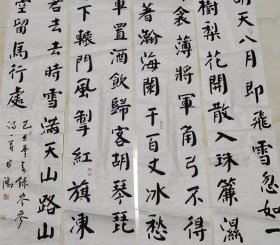 天八月即飛雪忽如一
樹梨花開散入珠簾濕
衾薄將軍角弓不得
著瀚海闌干百丈冰愁
軍置酒飲歸客胡琴琵
下轅門風掣紅旗凍
君去去時雪滿天山路山
空留馬行處
錄岑參
詩